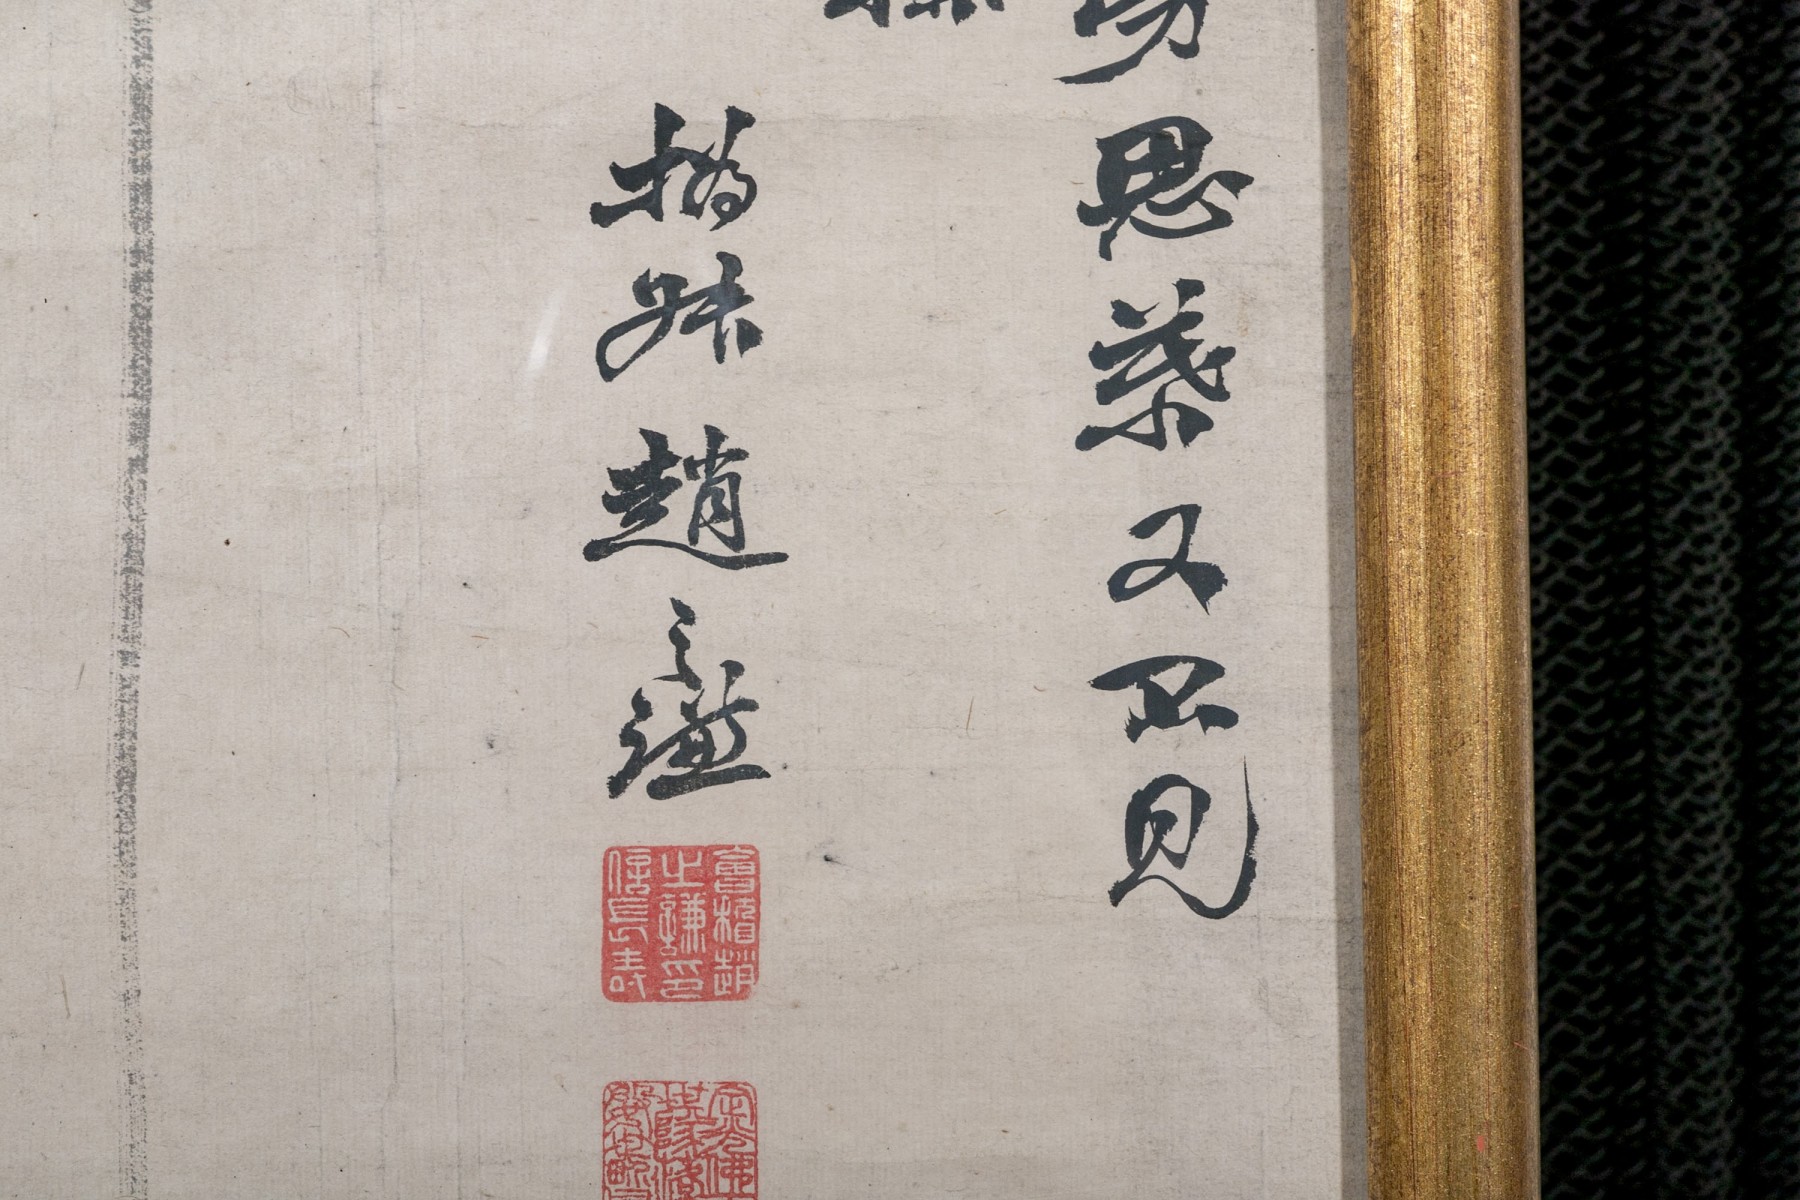 思葉又不見
撝叔趙之謙
會稽趙
之謙印
信長壽